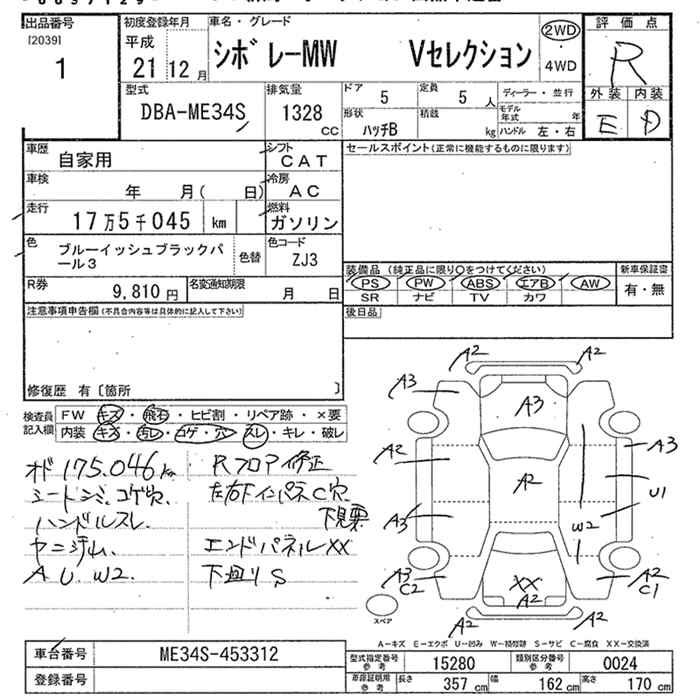 出品番号
[2039]
1
初度登録年月
平成
21 12 月
車名・グレード
シボレーMW Vセレクション
2WD
4WD
評価点
R
外装 内装
E D
型式
DBA-ME34S
排気量
1328 CC
ドア 5
定員 5 人
ディーラー・並行
形状 ハッチB
積載 kg
モデル年式 年
ハンドル 左・右
車歴 自家用
シフト CAT
セールスポイント(正常に機能するものに限ります)
車検 年 月( 日)
冷房 AC
走行 17万5千045 km
燃料 ガソリン
色 ブルーイッシュブラックパール3
色替
色コード ZJ3
装備品 (純正品に限り○をつけてください)
新車保証書
PS PW ABS エアB AW
有・無
SR ナビ TV カワ
R券 9,810 円
名変通知期限 月 日
後日品
注意事項申告欄 (不具合内容等は具体的に記入して下さい)
修復歴 有〔箇所 〕
検査員記入欄
FW キズ・飛石・ヒビ割・リペア跡・×要
内装 キズ・汚レ・コゲ・穴・スレ・キレ・破レ
オド 175.046 km
シートシミ、コゲ穴、
ハンドルスレ、
ヤニ汚ム、
A U. W2.
Rフロア修正
左右下インパネC穴
下見票
エンドパネルXX
下廻りS
A2 A2
A3 A3
A2 A2 A3
U1
A3 W2
A3 C2
XX
A2
A2 C1
A2 A2
スペア
A-キズ E-エクボ U-凹み W-補修跡 S-サビ C-腐食 XX-交換済
車台番号 ME34S-453312
登録番号
型式指定番号 参考 15280
類別区分番号 参考 0024
車庫証明用 参考 長さ 357 cm 幅 162 cm 高さ 170 cm